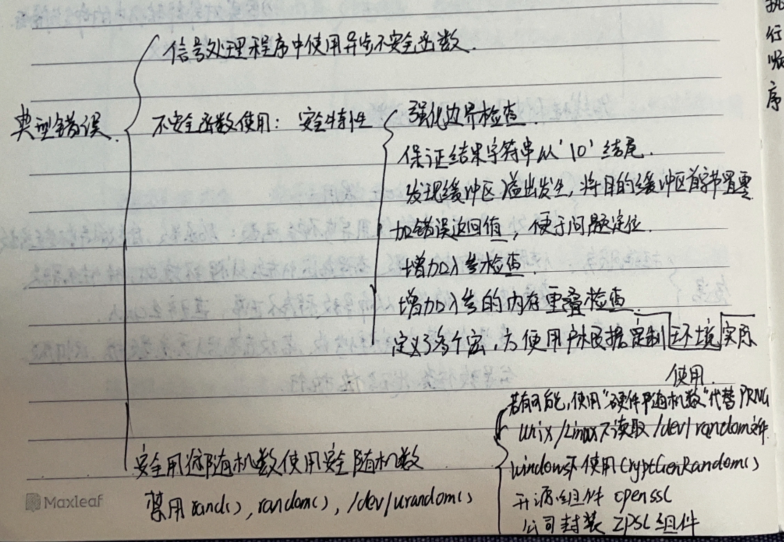 信号处理程序中使用异步不安全函数.
典型错误
不安全函数使用: 安全特性
强化边界检查.
保证结果字符串从'\0'结尾.
发现缓冲区溢出发生, 将目的缓冲区首字节置零
加错误返回值, 便于问题定位.
增加入参检查
增加入参的内存重叠检查.
定义了多个宏, 方便用户根据定制 环境实际
使用.
安全用途随机数使用安全随机数
禁用rand(), random(), /dev/urandom()
若有可能, 使用"硬件早随机数"代替PRNG
Unix/Linux下读取/dev/random文件.
windows下使用CryptGenRandom()
开源组件 openssl
公司封装 ZPSL组件
执
行
顺
序
Maxleaf